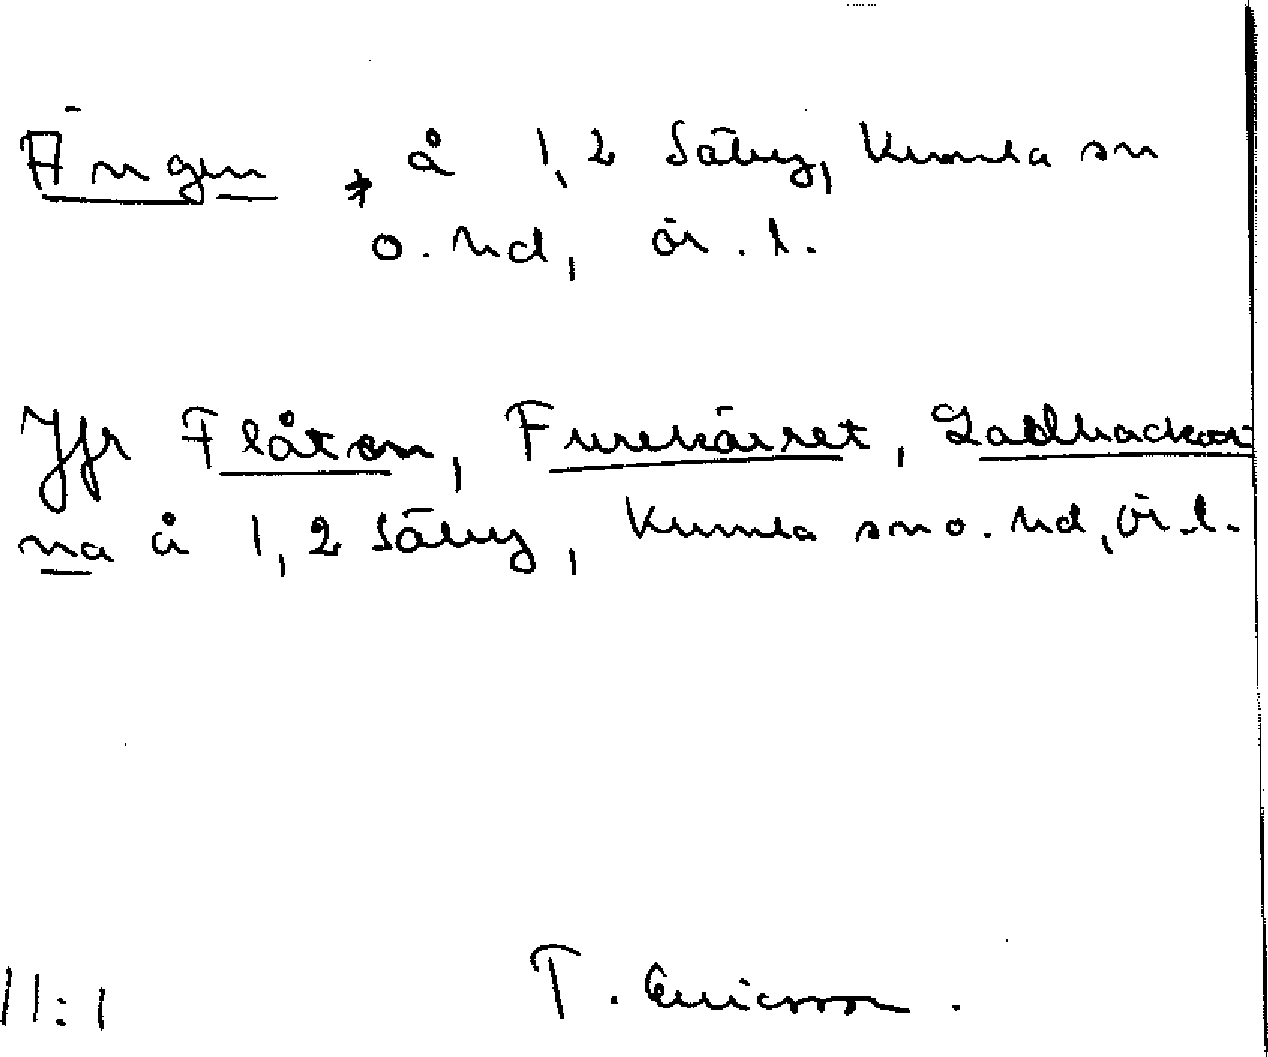 Ängen * å 1,2 Säby, Kumla sn
o. hd, ör. l.
Jfr Flåten, Furekärret, Ladbackar-
na å 1,2 Säby, Kumla sn o. hd, ör. l.
11:1 T. Ericsson.